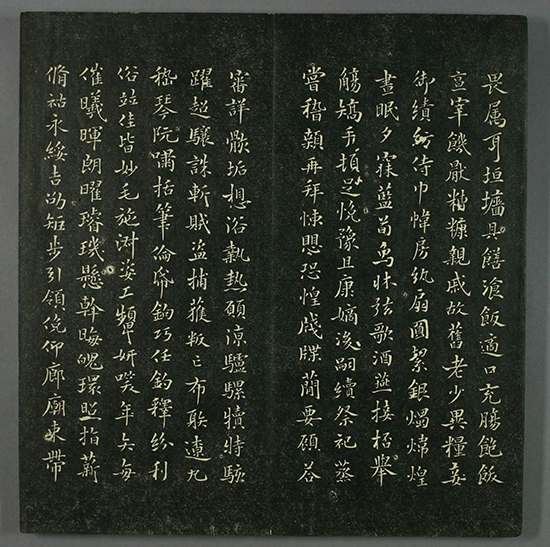 畏属耳垣墻具膳飡飯適口充腸飽飫
亨宰饑猒糟糠親戚故舊老少異糧妾
御績紡侍巾帷房紈扇圓絜銀燭煒煌
晝眠夕寐藍筍象牀弦歌酒讌接杯舉
觴矯手頓足悅豫且康嫡後嗣續祭祀蒸
嘗稽顙再拜悚懼恐惶牋牒簡要顧答
審詳骸垢想浴執熱願涼驢騾犢特駭
躍超驤誅斬賊盜捕獲叛亡布射遼丸
嵇琴阮嘯恬筆倫紙鈞巧任釣釋紛利
俗竝佳皆妙毛施淑姿工顰妍笑年矢每
催曦暉朗曜璿璣懸斡晦魄環照指薪
脩祜永綏吉劭矩步引領俛仰廊廟束帶